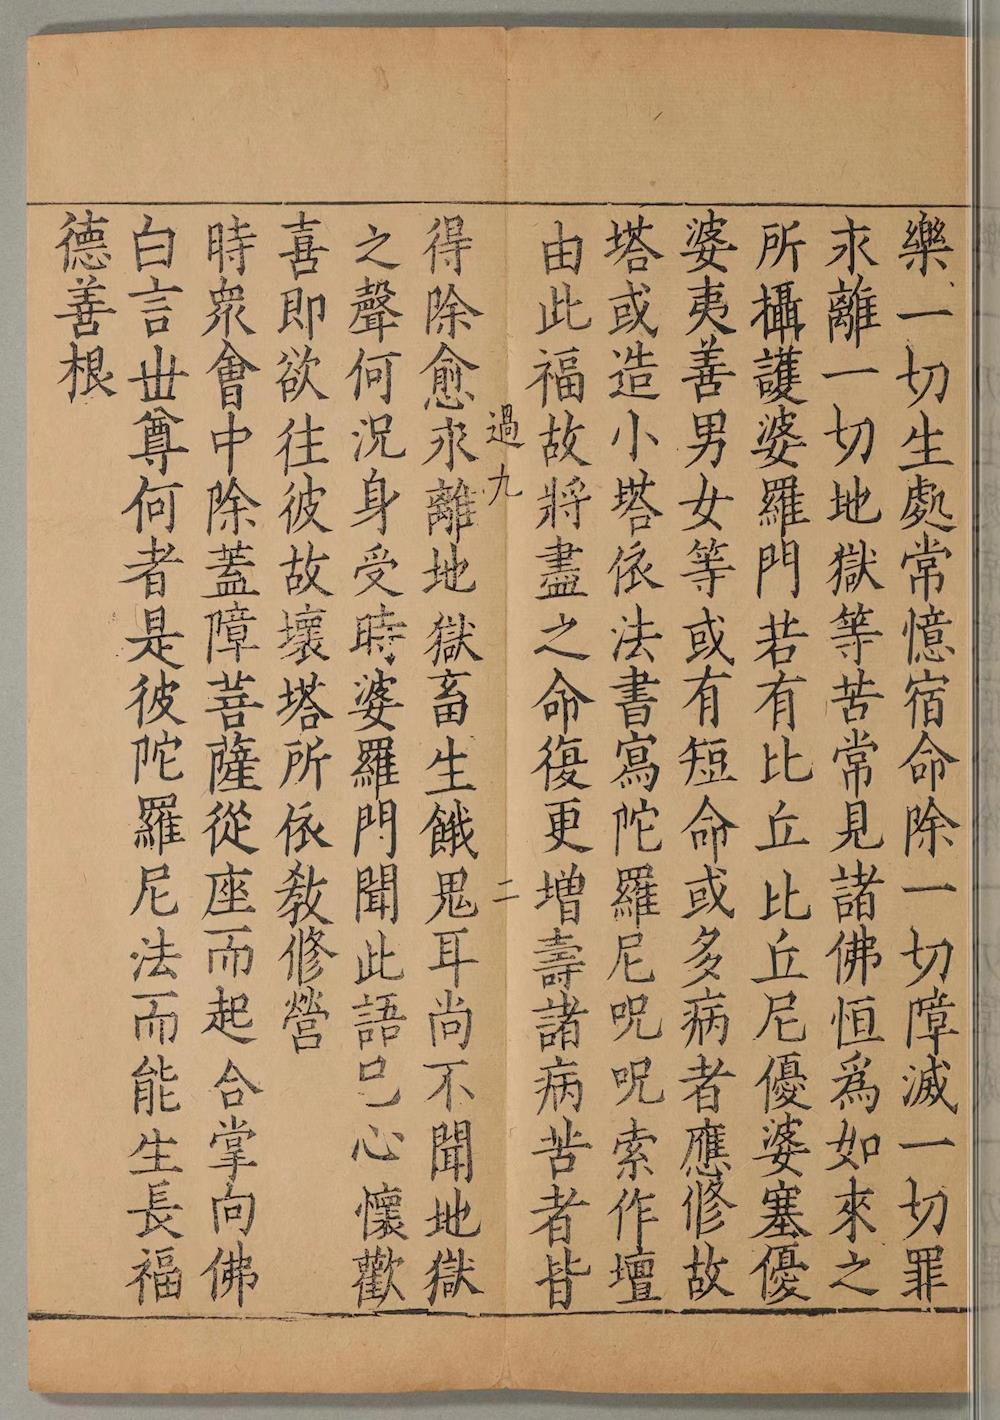 樂一切生處常憶宿命除一切障滅一切罪
永離一切地獄等苦常見諸佛恒爲如來之
所攝護婆羅門若有比丘比丘尼優婆塞優
婆夷善男女等或有短命或多病者應修故
塔或造小塔依法書寫陀羅尼呪呪索作壇
由此福故將盡之命復更增壽諸病苦者皆
過九 二
得除愈永離地獄畜生餓鬼耳尚不聞地獄
之聲何況身受時婆羅門聞此語已心懷歡
喜即欲往彼故壞塔所依教修營
時衆會中除蓋障菩薩從座而起合掌向佛
白言世尊何者是彼陀羅尼法而能生長福
德善根